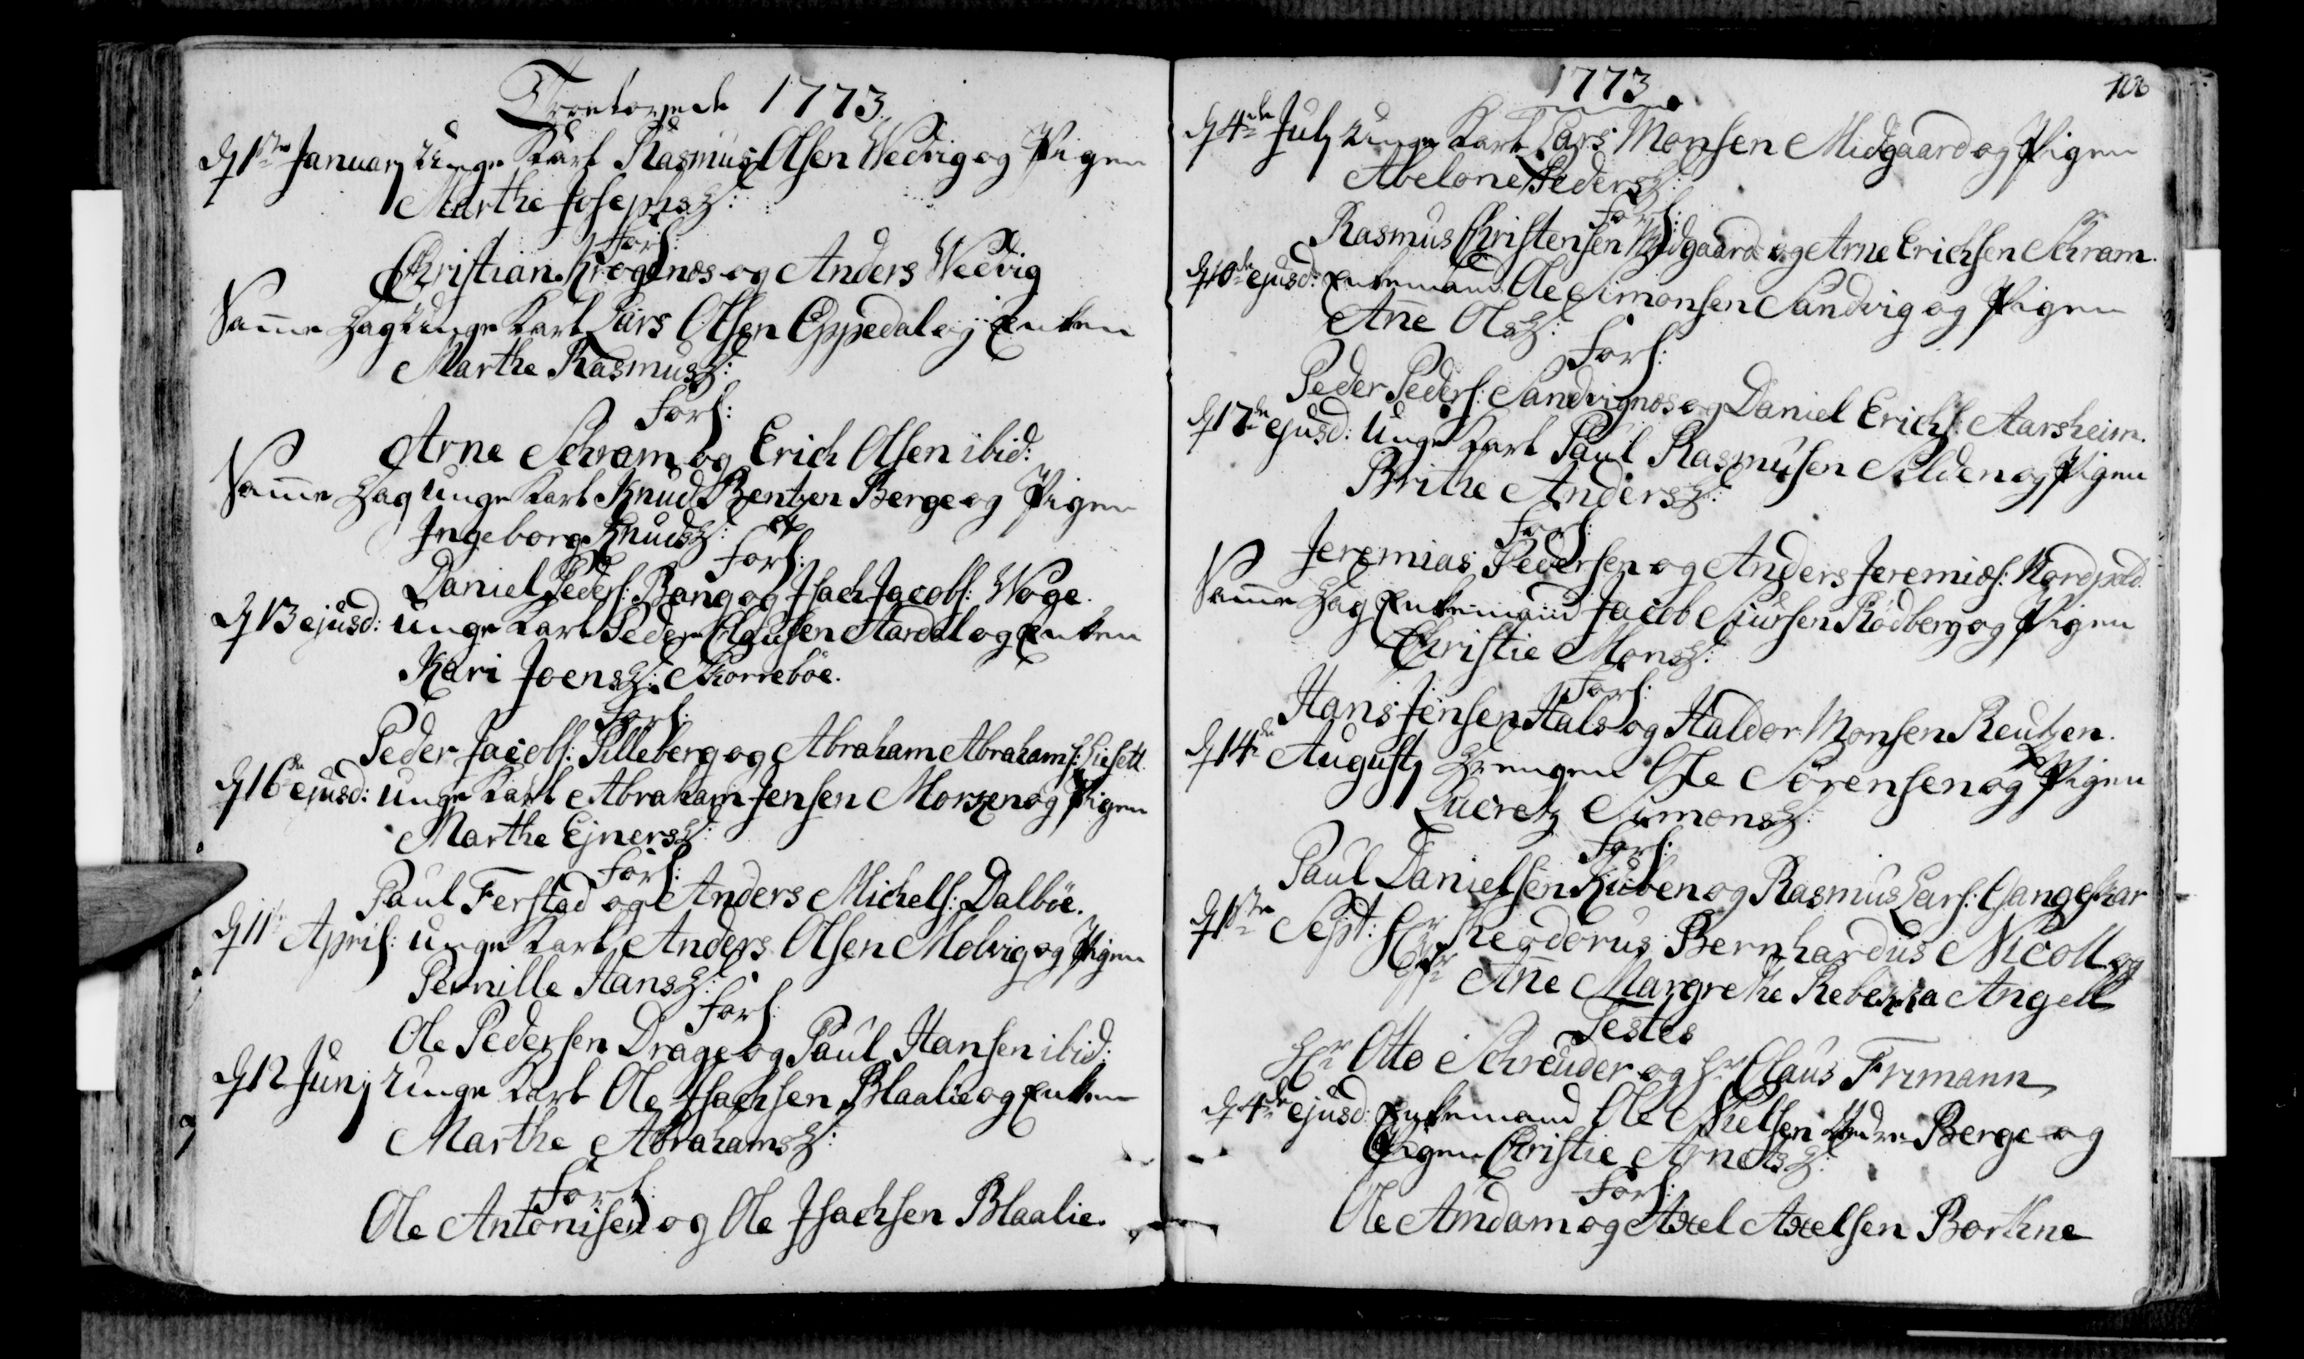 Troelovede 1773.
d 1ste Januarj unge Karl Rasmus Olsen Wedvig og Pigen
Marthe Josephsd:
Forl:
Christian Krogenæs og Anders Wedvig
Samme Dag unge Karl Lars Olsen Eppedal og Enken
Marthe Rasmusd:
Forl:
Arne Schram og Erich Olsen ibid:
Samme Dag unge Karl Knud Bentzen Berge og Pigen
Ingeborg Knudsd:
Forl:
Daniel Peders: Bang og Isach Jacobs: Woge.
d 13 ejusd: unge Karl Peder Clausen Aardal og Enken
Kari Joensd: Skorreböe.
Forl:
Peder Jacobs: Pilleberg og Abraham Abrahams:
d 16de ejusd: unge Karl Abraham Jensen Morzen og Pigen
Marthe Ejnersd:
Forl:
Paul Ferstad og Anders Michels: Dalböe.
d 11te April: unge Karl Anders Olsen Molvig og Pigen
Pernille Hansd:
Forl:
Ole Pedersen Drage og Paul Hansen ibid:
d 12 Junj unge Karl Ole Isachsen Blaalie og Enken
Marthe Abrahamsd:
Forl:
Ole Antonisen og Ole Isachsen Blaalie.
1773
106
d 4de Julj unge Karl Lars Monsen Midgaard og Pigen
Abelone Pedersd:
Forl:
Rasmus Christensen Midgaard og Arne Erichsen Schram.
d 10de ejusd: Enkemand Ole Simonsen Sandvig og Pigen
Ane Olsd:
Forl:
Peder Peders: Sandvignæs og Daniel Erichs: Aarsheim.
d 17de ejusd: unge Karl Paul Rasmusen Selden og Pigen
Brithe Andersd:
Forl:
Jeremias Pedersen og Anders Jeremias: Nordpold.
Samme Dag Enkemand Jacob Siursen Rödberg og Pigen
Christie Monsd:
Forl:
Hans Jensen Hals og Haldor Monsen Reutzen.
d 14de Augustj Drengen Ole Sörensen og Pigen
Lucretz Simonsd:
Forl:
Paul Danielsen Kuben og Rasmus Lars:
d 1ste Sept: Hr Theodorus Bernhardus Nicoll og
Ane Margrethe Rebekka Angell
Testes
Hr Otto Schreuder og Hr Claus Frimann
d 4de ejusd: Enkemand Ole Nielsen Berge og
Pigen Christie Arnetsd:
Forl:
Ole Amdam og Axel Axelsen Borthne